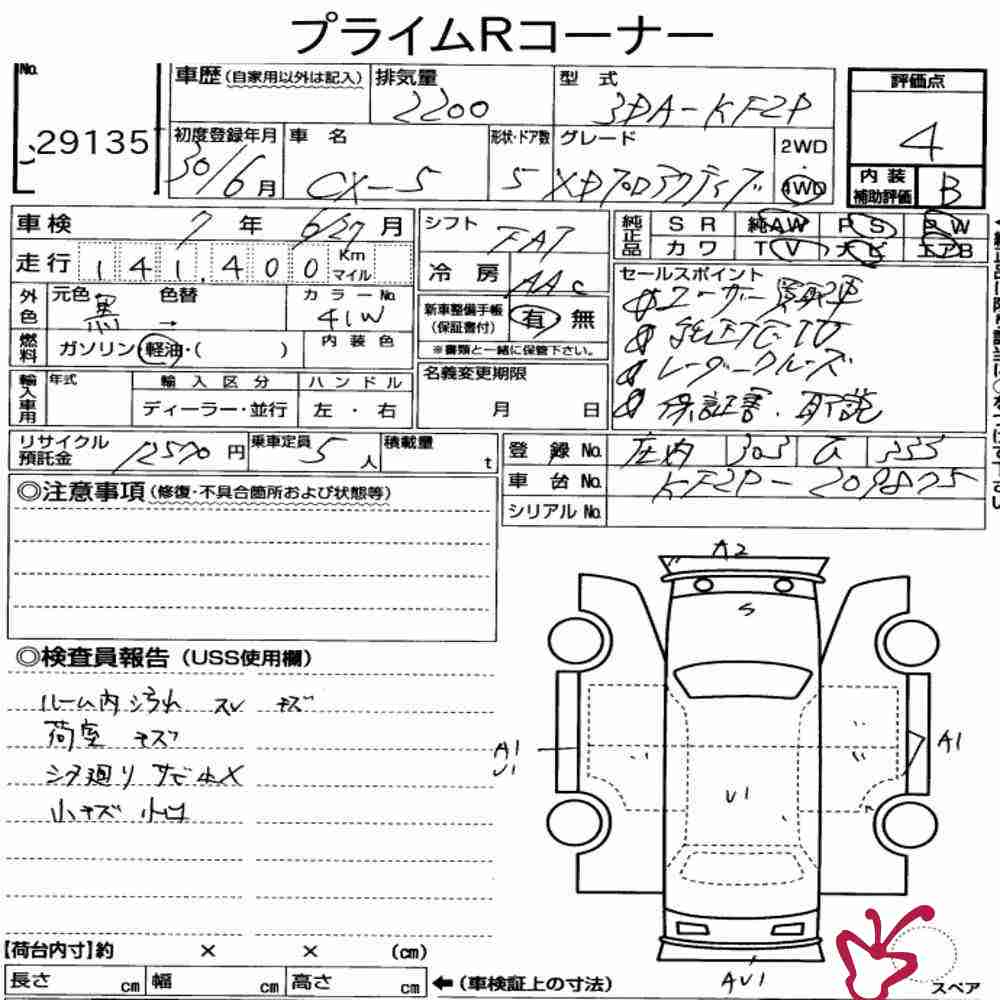 プライムRコーナー
No.
29135
車歴（自家用以外は記入）
排気量
2200
型 式
3DA-KF2P
評価点
4
初度登録年月
30/6月
車 名
CX-5
形状・ドア数
5
グレード
XDプロアクティブ
2WD
4WD
内装補助評価
B
車検 7年 6/27月
走行 141,400 Km マイル
シフト
FAT
冷房
AAC
純正品
SR 純AW PS PW
カワ TV ナビ エアB
セールスポイント
ユーザー買取車
純正TV
レーダークルーズ
保証書、取説
外色
元色 黒
色替 →
カラーNo.
41W
燃料
ガソリン・軽油・（ ）
内装色
新車整備手帳（保証書付）
有 無
※書類と一緒に保管下さい。
輸入車用
年式
輸入区分
ディーラー・並行
ハンドル
左・右
名義変更期限
月 日
リサイクル預託金
12570円
乗車定員
5人
積載量
t
登録No.
庄内 303 355
車台No.
KF2P-209875
シリアルNo.
◎注意事項（修復・不具合箇所および状態等）
◎検査員報告（USS使用欄）
ルーム内汚れ スレ キズ
荷室 キズ
シタ廻り サビ
小キズ 小凹
A2
S
A1
U1
A1
U1
AU1
【荷台内寸】約 × × (cm)
長さ cm 幅 cm 高さ cm
←（車検証上の寸法）
スペア